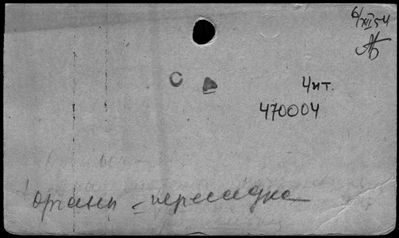 6/XII 54
Чит.
470004
Органы - пересадка